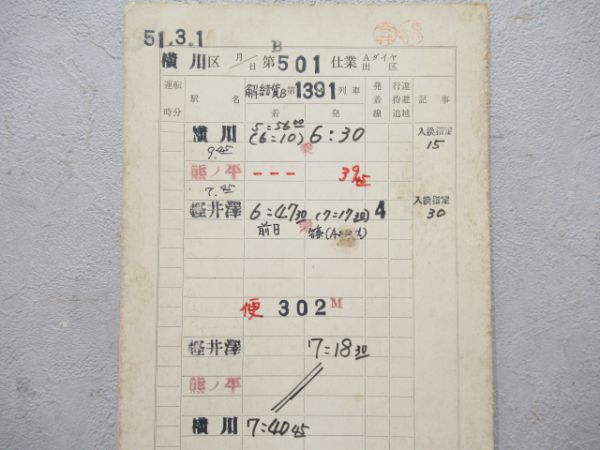 51.3.1
横川区 月/日 第B501仕業 Aダイヤ出区
運転時分 駅名 解結貨B第1391列車 着 発 発着線 行違待避追越 記事
横川 5=56 00 (6=10) 6:30 入換指定 15
9.45
熊ノ平 --- 39 45
7.45
軽井澤 6=47 30 (7=17 20) 4 入換指定 30
前日
便 302M
軽井澤 7=18 30
熊ノ平 //
横川 7=40 45